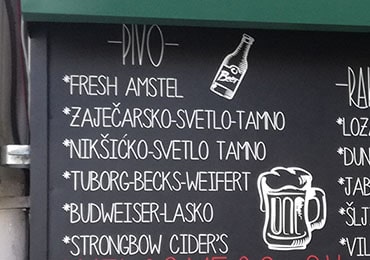 -PIVO-
Beer
*FRESH AMSTEL
*ZAJEČARSKO-SVETLO-TAMNO
*NIKŠIĆKO-SVETLO TAMNO
*TUBORG-BECKS-WEIFERT
*BUDWEISER-LASKO
*STRONGBOW CIDER'S
*LOZA
*DUN
*JAB
*ŠLJ
*VIL